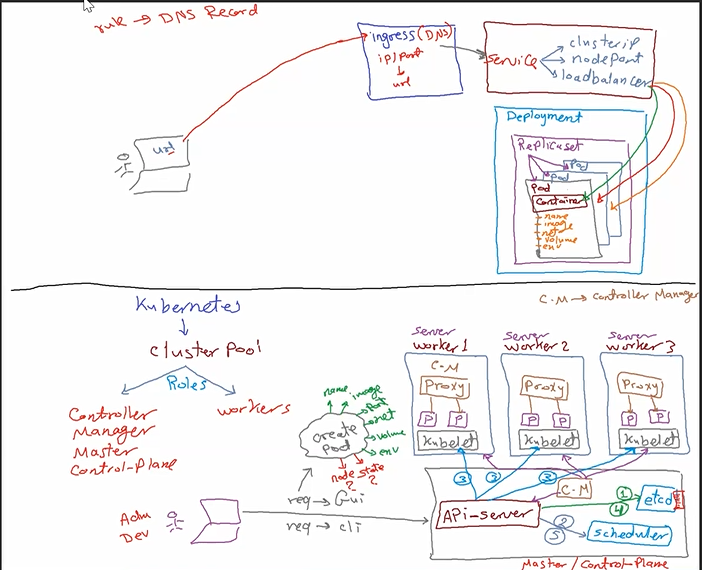 rule → DNS Record
ingress (DNS)
ip/port
↓
url
service
clusterip
nodePort
loadbalancer
url
Deployment
Replicaset
Pod
Pod
Pod
Container
name
image
net
volume
env
C.M → Controller Manager
Kubernetes
↓
Cluster Pool
Roles
Controller
Manager
Master
Control-Plane
workers
name
image
Port
net
volume
env
create
pod
node
?
state
?
req → Gui
req → cli
Adm
Dev
server
worker 1
C-M
Proxy
P
P
Kubelet
server
worker 2
Proxy
P
P
Kubelet
server
worker 3
Proxy
P
P
Kubelet
3
3
3
C-M
API-server
1
4
etcd
2
5
scheduler
Master / Control-Plane